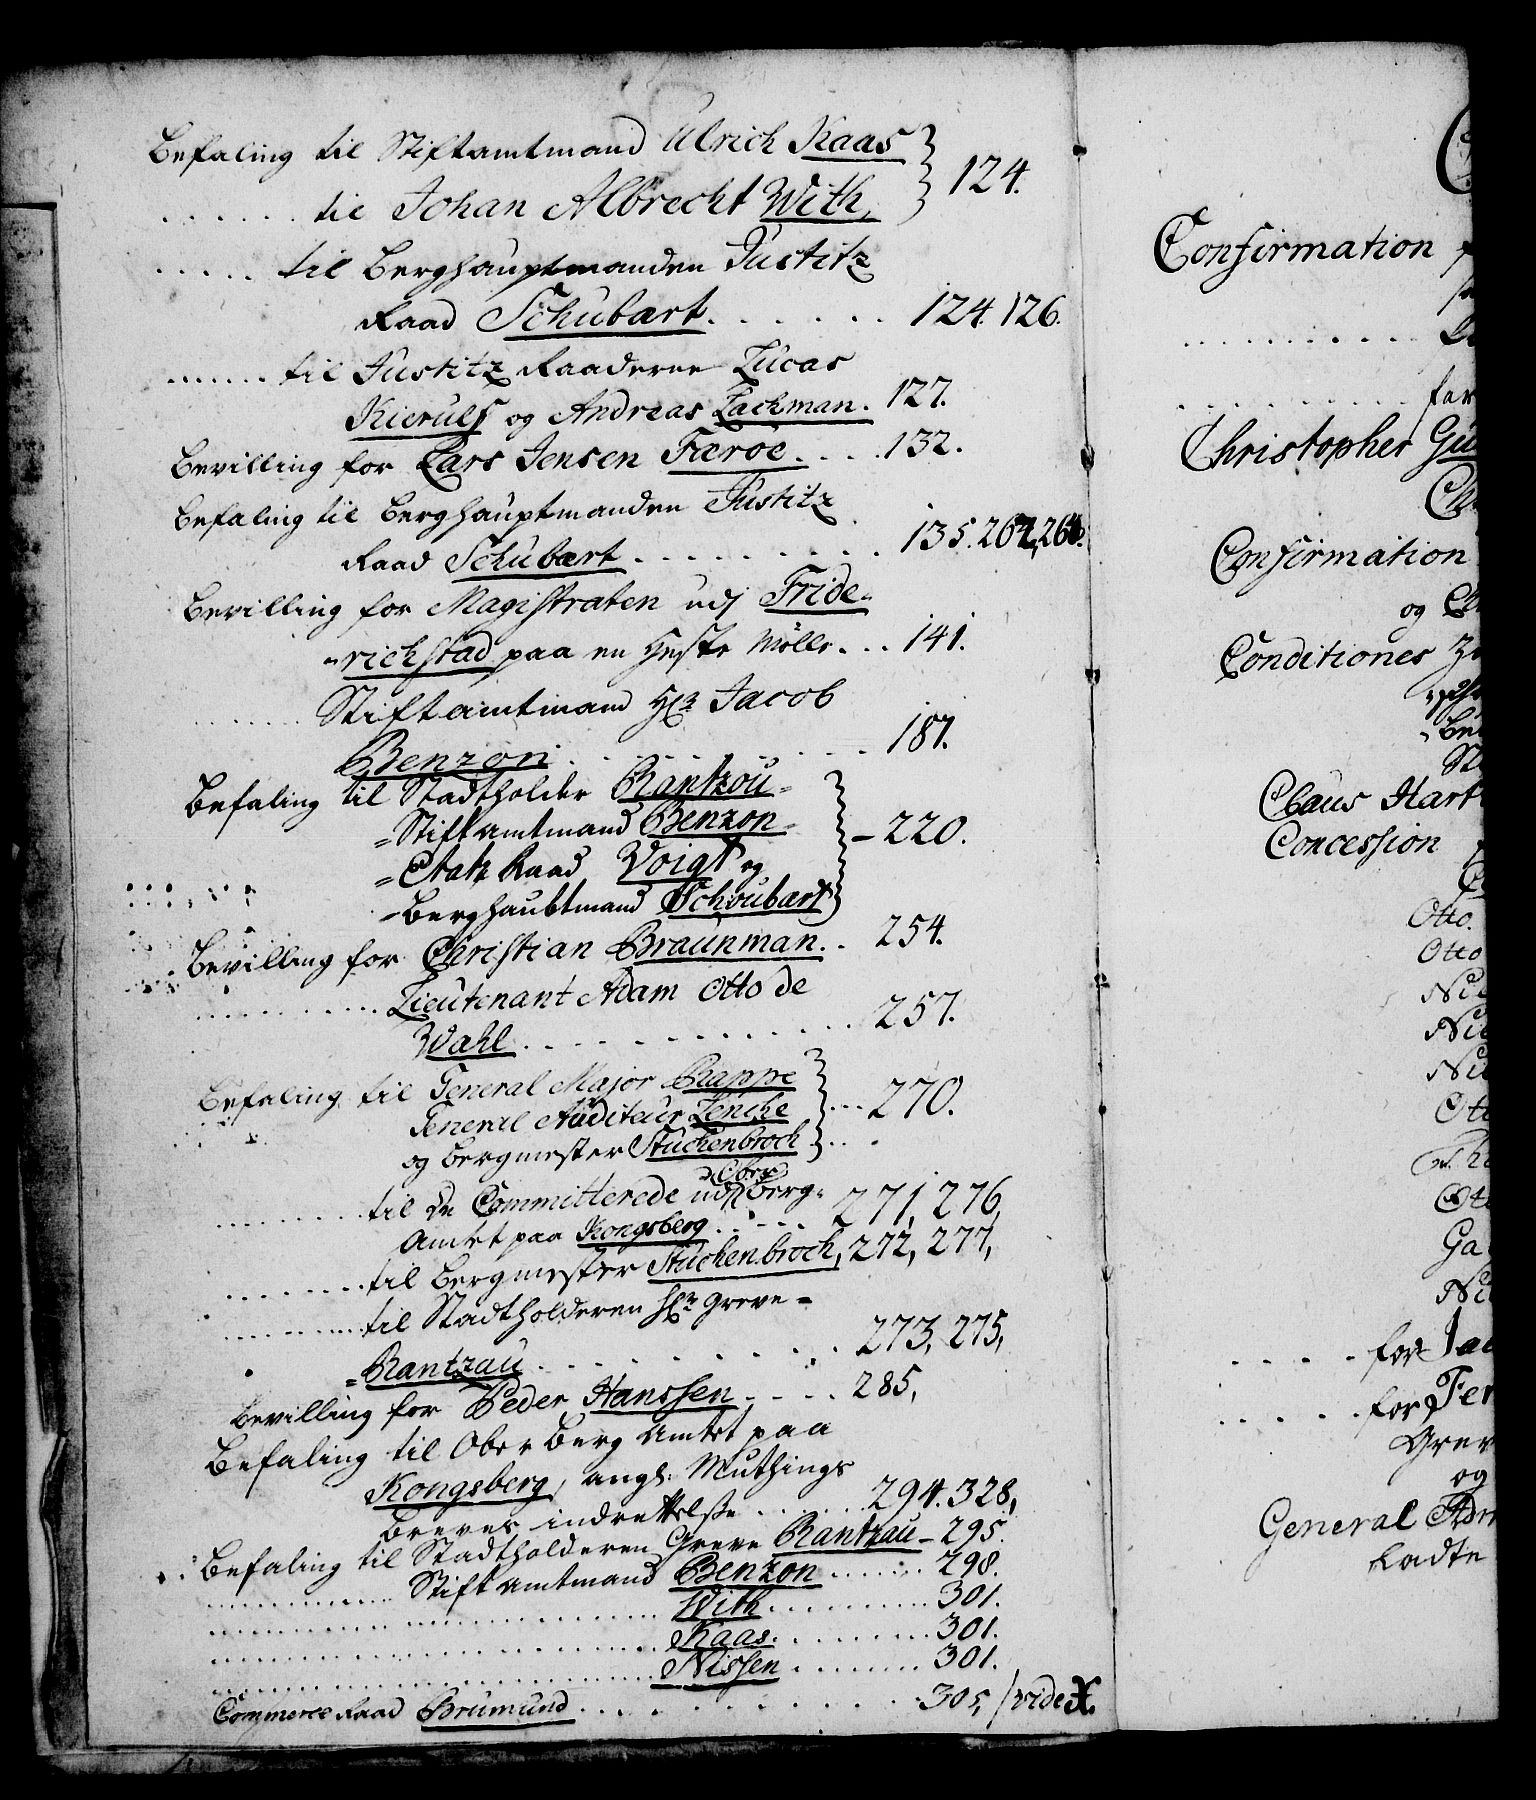 Befaling til Stiftamtmand Ulrich Kaas
...... til Johan Albrecht With, } 124.
..... til Berghauptmanden Justitz
Raad Schubart. ...... 124. 126.
....... til Justitz Raaderne Lucas
Kierulf og Andreas Zackman. 127.
Bevilling for Lars Jensen Færoe. ... 132.
Befaling til Berghauptmanden Justitz
Raad Schubært ......... 135. 264.
Bevilling for Magistraten udj Fride-
-richstad paa en Heste Mölle... 141.
....... Stiftamtmand Hr. Jacob
Benzon. ......... 187.
Befaling til Stadtholder Rantzou-
-Stiftamtmand Benzon-
-Etatz Raad Voigt og } - 220.
-Berghaubtmand Schoubart
Bevilling for Christian Braunman. . 254.
.......... Lieutenant Adam Otto de
Wahl. .......... 257.
Befaling til General Major Rappe
General Auditeur Lenche } ... 270.
og Bergmester Stuckenbroch ...
......... til de Committerede udj Ober Berg-
Amtet paa Kongsberg ..... 271, 276,
......... til Bergmester Stuckenbroch, 272, 277,
......... til Stadtholderen Hr. Greve-
-Rantzau .......... 273, 275,
Bevilling for Peder Hanssen. ... 285,
Befaling til Ober Berg Amtet paa
Kongsberg, ang: Muthings
Breves indrettelsse ..... 294. 328,
Befaling til Stadtholderen Greve Rantzau - 295.
............ Stiftamtmand Benzon ...... 298.
........................ With. ......... 301.
........................ Kaas. ........ 301.
........................ Nissen ........ 301.
Commerce Raad Brumund ......... 305, /vide X.
Confirmation
Christopher
Confirmation
og
Conditiones
Claus Hart
Concession
Otto.
Otto
..... for
..... for
og
General
Ladte